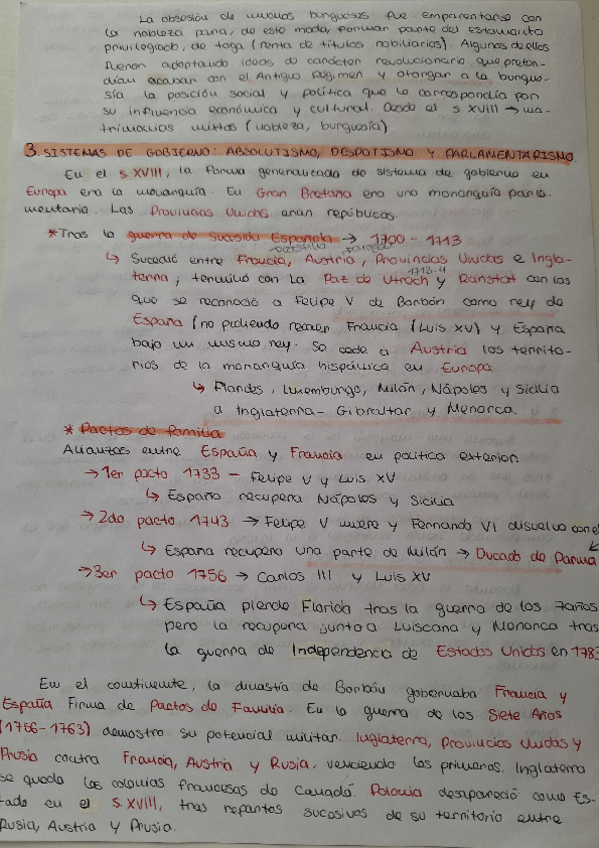 La obsesión de muchos burgueses fue emparentarse con
la nobleza para, de este modo, formar parte del estamento
privilegiado, de toga (renta de títulos nobiliarios). Algunos de ellos
fueron adoptando ideas de carácter revolucionario que preten-
dían acabar con el Antiguo Régimen y otorgar a la burgue-
sía la posición social y política que le correspondía por
su influencia económica y cultural. Desde el s. XVIII → ma-
trimonios mixtos (nobleza, burguesía)
3. SISTEMAS DE GOBIERNO: ABSOLUTISMO, DESPOTISMO Y PARLAMENTARISMO.
En el s. XVIII, la forma generalizada de sistema de gobierno en
Europa era la monarquía. En Gran Bretaña era una monarquía parla-
mentaria. Las Provincias Unidas eran repúbicas.
* Tras la guerra de sucesión Española → 1700 - 1713
↳ Sucedió entre Francia, Austria, Provincias Unidas e Ingla-
terra, terminó con la Paz de Utrech y Ranstat con las
1713-4
que se reconoció a Felipe V de Borbón como rey de
España (no pudiendo recaer Francia (Luis XV) y España
bajo un mismo rey. Se cede a Austria los territo-
rios de la monarquía hispánica en Europa
↳ Flandes, Luxemburgo, Milán, Nápoles y Sicilia
a Inglaterra - Gibraltar y Menorca.
* Pactos de familia
Alianzas entre España y Francia en política exterior.
→ 1er pacto 1733 - Felipe V y Luis XV
↳ España recupera Nápoles y Sicilia
→ 2do pacto 1743 → Felipe V muere y Fernando VI disuelve con el
↳ España recupera una parte de Milán → Ducado de Parma
→ 3er pacto 1756 → Carlos III y Luis XV
↳ España pierde Florida tras la guerra de los 7 años
pero la recupera junto a Luisiana y Menorca tras
la guerra de Independencia de Estados Unidos en 1783
En el continente, la dinastía de Borbón gobernaba Francia y
España Firma de Pactos de Familia. En la guerra de los Siete Años
(1756-1763) demostro su potencial militar. Inglaterra, Provincias Unidas y
Prusia contra Francia, Austria y Rusia, venciendo los primeros. Inglaterra
se queda las colonias francesas de Canadá. Polonia desapareció como Es-
tado en el s. XVIII, tras repartos sucesivos de su territorio entre
Rusia, Austria y Prusia.